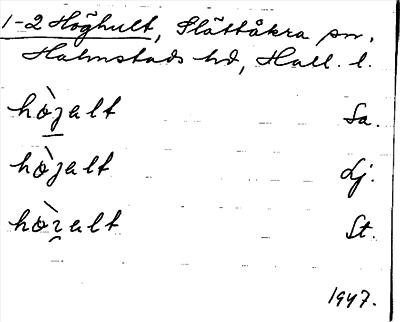 1-2 Höghult, Slättåkra sn.
Halmstads hd, Hall. l.
hòʒalt Sa.
hòʒalt Lj.
hòꝛalt St.
1947.